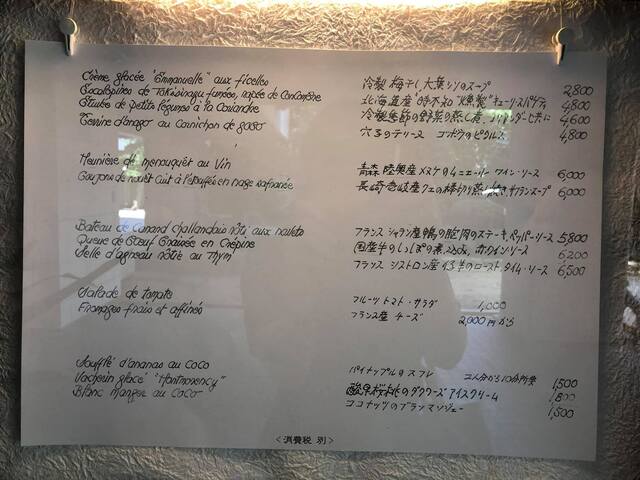 Crème glacée "Emmanuelle" aux ficelles 冷製 梅干し 大葉シソのスープ 2,800
Escalopines de Tokisirazu fumées, rapée de Concombre 北海道産"時不知"燻製 キューリ・スパゲティ 4,800
Etuvée de petits légumes à la Coriandre 冷製季節の野菜の蒸し煮 コリアンダーと共に 4,600
Terrine d'anago au cornichon de gobo 穴子のテリーヌ ゴボウのピクルス 4,800
Meunière de menouquet au Vin 青森 陸奥産 メヌケのムニエール ワイン・ソース 6,000
Goujons de Cuit à l'étouffée en nage safranée 長崎 壱岐産クエの棒切り蒸し焼き サフランスープ 6,000
Bateau de Canard challandais rôti, aux navets フランス シャラン産鴨の胸肉のステーキ、ペッパーソース 5,800
Queue de Bœuf braisée en Crépine 国産牛のしっぽの煮込み、赤ワイン・ソース 6,200
Selle d'agneau rôtie au Thym フランス シストロン産 仔羊のロースト、タイム・ソース 6,500
Salade de tomate フルーツトマト・サラダ 1,000
Fromages frais et affinés フランス産 チーズ 2,000円から
Soufflé d'ananas au coco パイナップルのスフレ 二人分から 1,500
Vacherin glacé "Montmorency" 酸果桜桃のダクワーズアイスクリーム 1,800
Blanc manger au coco ココナッツのブランマンジェー 1,500
<消費税 別>